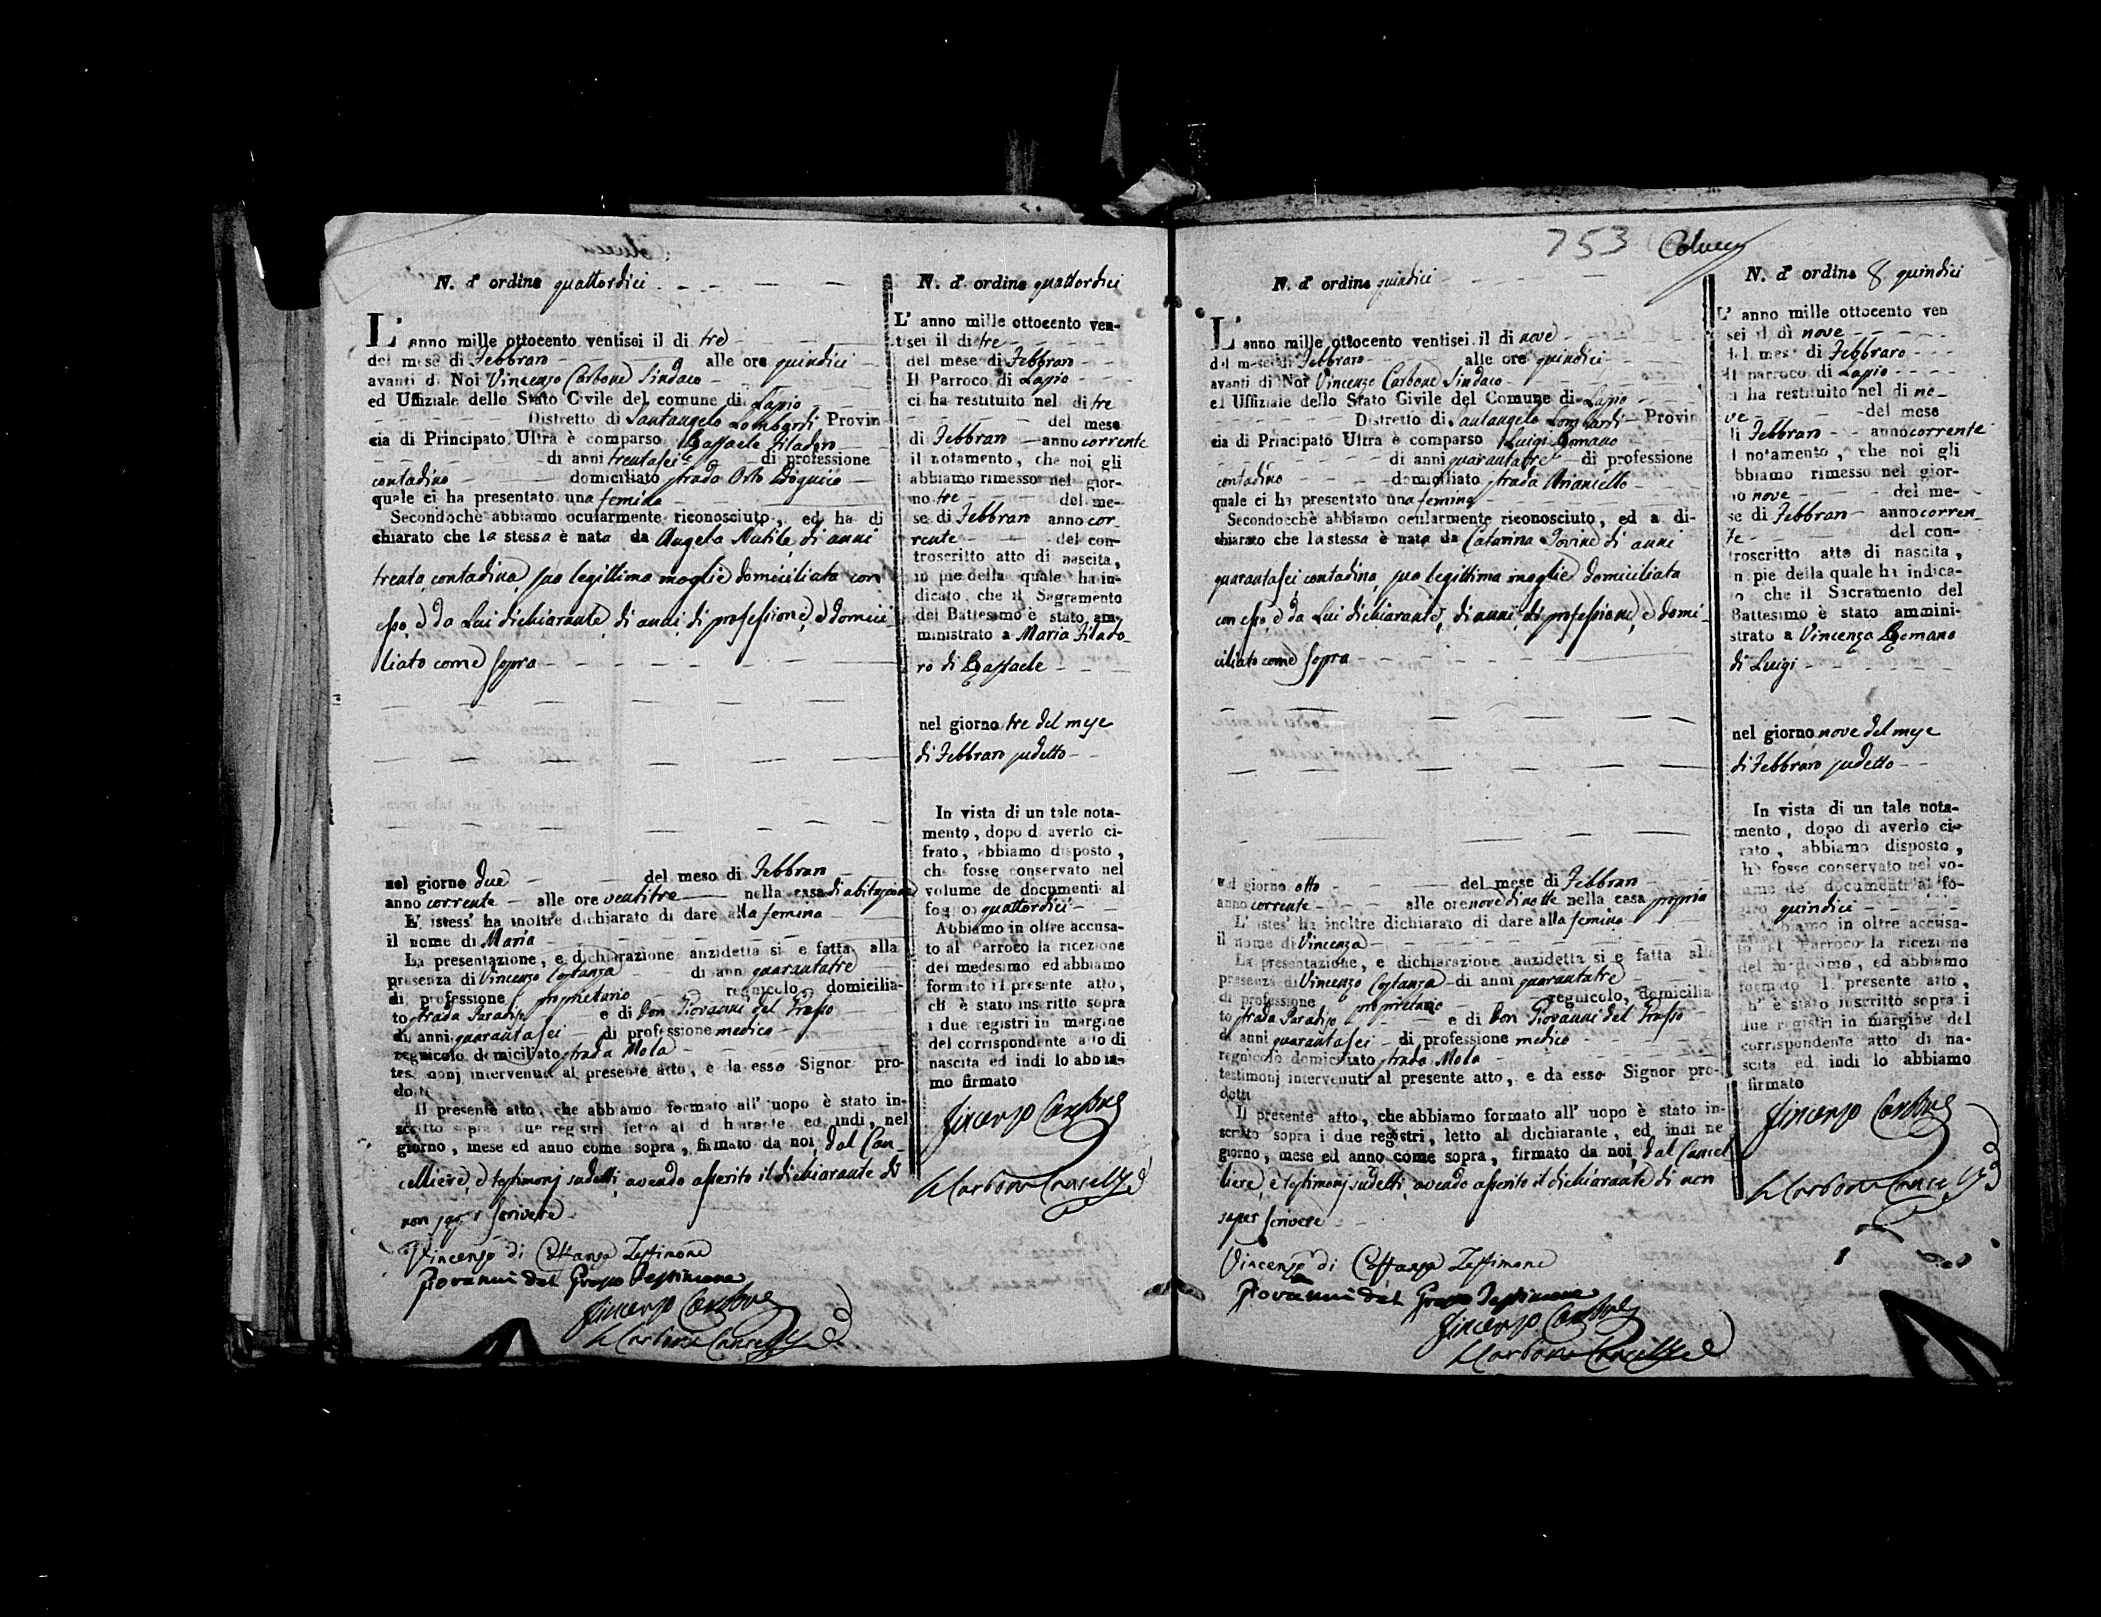 N. d' ordine quattordici
L' anno mille ottocento ventisei il di tre
del mese di Febbraro alle ore quindici
avanti di Noi Vincenzo Carbone Sindaco
ed Uffiziale dello Stato Civile del comune di Lapio
Distretto di Santangelo Lombardi Provin
cia di Principato Ultra è comparso Raffaele Filadoro
di anni trentasei di professione
contadino domiciliato strada Orto
quale ci ha presentato una femina
Secondochè abbiamo ocularmente riconosciuto, ed ha di
chiarato che la stessa è nata da Angela Nutile di anni
trenta contadina, sua legittima moglie domiciliata con
esso, e da Lui dichiarante, di anni, di professione, e domici
liato come sopra
nel giorno due del mese di Febbraro
anno corrente alle ore ventitre nella casa di abitazione
L' istess' ha inoltre dichiarato di dare alla femina
il nome di Maria
La presentazione, e dichiarazione anzidetta si e fatta alla
presenza di Vincenzo Costanza di anni quarantatre
di professione proprietario regnicolo, domicilia-
to strada Paradiso e di Don Giovanni del Grosso
di anni quarantasei di professione medico
regnicolo domiciliato strada Mola
testimonj intervenuti al presente atto, e da esso Signor pro-
dotti
Il presente atto, che abbiamo formato all' uopo è stato in-
scritto sopra i due registri, letto al dichiarante, ed indi, nel
giorno, mese ed anno come sopra, firmato da noi, dal Can-
celliere, e testimonj sudetti, avendo asserito il dichiarante di
non saper scrivere
Vincenzo di Costanza Testimone
Giovanni del Grosso Testimone
Vincenzo Carbone
Carbone Cancelliere
N. d' ordine quattordici
L' anno mille ottocento ven-
tisei il di tre
del mese di Febbraro
Il Parroco di Lapio
ci ha restituito nel di tre
del mese
di Febbraro anno corrente
il notamento, che noi gli
abbiamo rimesso nel gior-
no tre del me-
se di Febbraro anno cor-
rente del con-
troscritto atto di nascita,
in pie della quale ha in-
dicato, che il Sagramento
del Battesimo è stato am-
ministrato a Maria Filado-
ro di Raffaele
nel giorno tre del mese
di Febbraro sudetto
In vista di un tale nota-
mento, dopo d averlo ci-
frato, abbiamo disposto,
che fosse conservato nel
volume de documenti al
foglio quattordici
Abbiamo in oltre accusa-
to al Parroco la ricezione
del medesimo ed abbiamo
formato il presente atto,
ch è stato inscritto sopra
i due registri in margine
del corrispondente atto di
nascita ed indi lo abbia-
mo firmato
Vincenzo Carbone
Carbone Cancelliere
753 Colucci
N. d' ordine quindici
L' anno mille ottocento ventisei il di nove
del mese di Febbraro alle ore quindici
avanti di Noi Vincenzo Carbone Sindaco
ed Uffiziale dello Stato Civile del Comune di Lapio
Distretto di Santangelo Lombardi Provin
cia di Principato Ultra è comparso Luigi Romano
di anni quarantatre di professione
contadino domiciliato strada Ananiello
quale ci ha presentato una femina
Secondocchè abbiamo ocularmente riconosciuto, ed a di-
chiarato che la stessa è nata da Catarina Iovine di anni
quarantasei contadina, sua legittima moglie domiciliata
con esso, e da Lui dichiarante, di anni, di professione, e domi-
ciliato come sopra
nel giorno otto del mese di Febbraro
anno corrente alle ore nove di notte nella casa propria
L' istes' ha inoltre dichiarato di dare alla femina
il nome di Vincenza
La presentazione, e dichiarazione anzidetta si e fatta alla
presenza di Vincenzo Costanza di anni quarantatre
di professione proprietario regnicolo, domicilia-
to strada Paradiso e di Don Giovanni del Grosso
di anni quarantasei di professione medico
regnicolo domiciliato strada Mola
testimonj intervenuti al presente atto, e da esso Signor pro-
dotti
Il presente atto, che abbiamo formato all' uopo è stato in-
scritto sopra i due registri, letto al dichiarante, ed indi ne
giorno, mese ed anno come sopra, firmato da noi, dal Cancel-
liere, e testimonj sudetti, avendo asserito il dichiarante di non
saper scrivere
Vincenzo di Costanza Testimone
Giovanni del Grosso Testimone
Vincenzo Carbone
Carbone Cancelliere
N. d' ordine 8 quindici
L' anno mille ottocento ven
sei il dì nove
del mese di Febbraro
Il parroco di Lapio
ci ha restituito nel di no-
ve del mese
di Febbraro anno corrente
il notamento, che noi gli
abbiamo rimesso nel gior-
no nove del me-
se di Febbraro anno corren-
te del con-
troscritto atto di nascita,
in pie della quale ha indica-
to che il Sacramento del
Battesimo è stato ammini-
strato a Vincenza Romano
di Luigi
nel giorno nove del mese
di Febbraro sudetto
In vista di un tale nota-
mento, dopo di averlo ci-
frato, abbiamo disposto,
che fosse conservato nel vo-
lume de' documenti al fo-
glio quindici
Abbiamo in oltre accusa-
to al Parroco la ricezione
del medesimo, ed abbiamo
formato il presente atto,
ch' è stato inscritto sopra i
due registri in margine del
corrispondente atto di na-
scita ed indi lo abbiamo
firmato
Vincenzo Carbone
Carbone Cancelliere